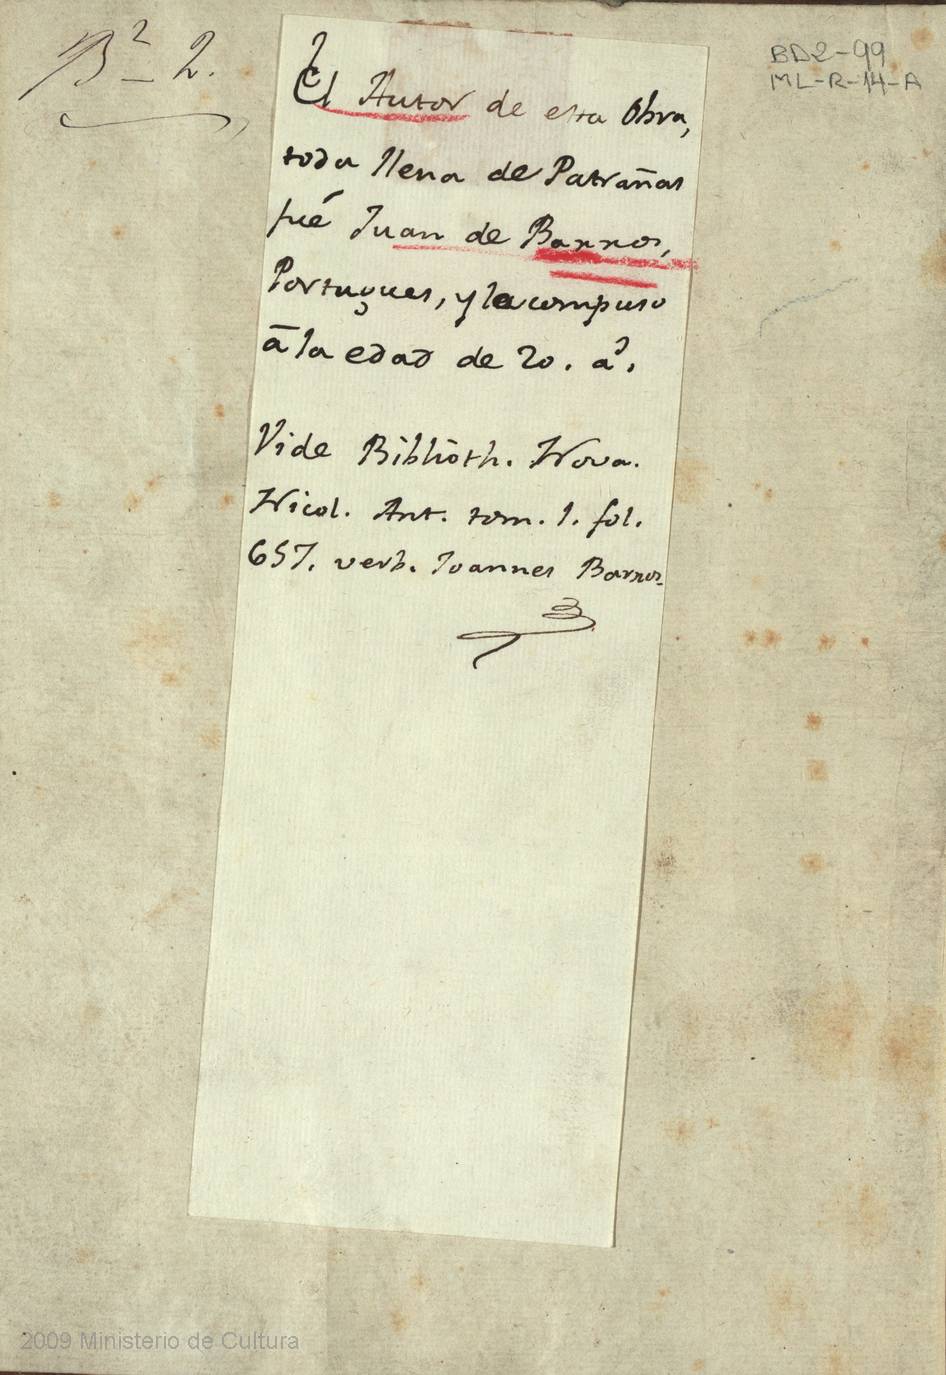 B² 2.
BD2-99
ML-R-14-A
El Autor de esta Obra,
toda llena de Patrañas
fué Juan de Barros,
Portugues, y la compuso
à la edad de 20. aˢ.
Vide Biblioth. Nova.
Nicol. Ant. tom. 1. fol.
657. verb. Ioannes Barros.
2009 Ministerio de Cultura